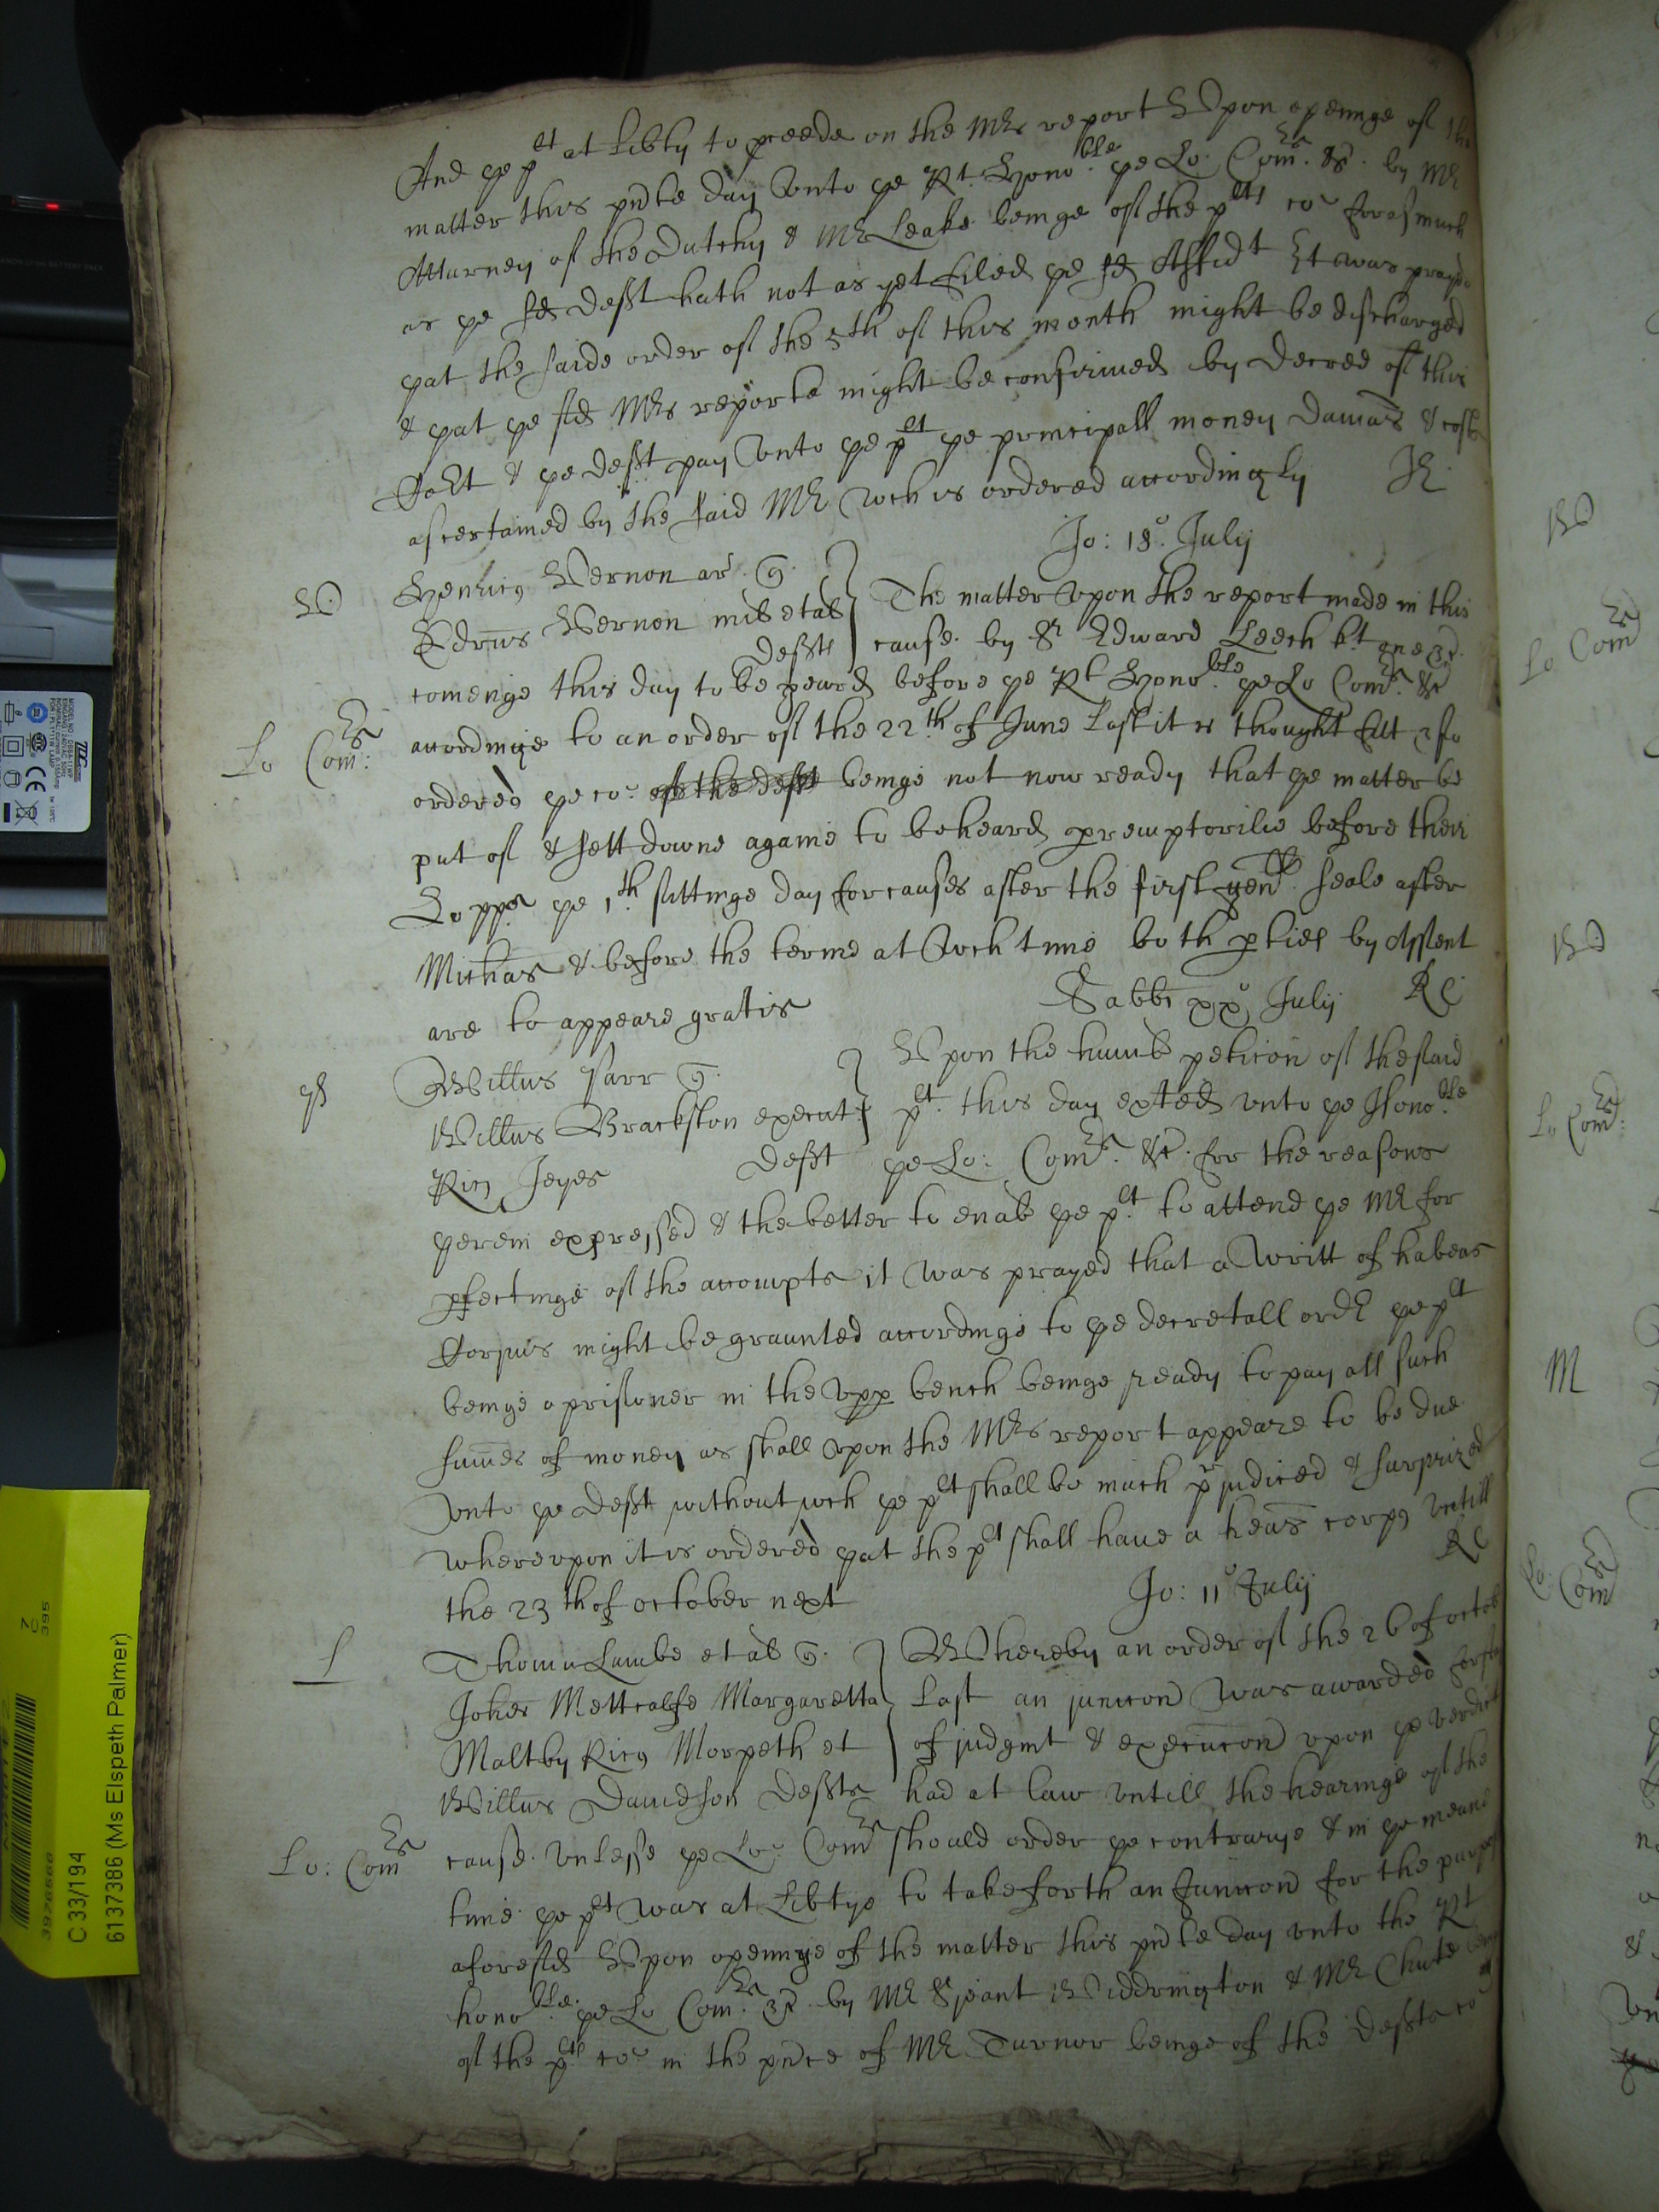 And ye plt at Libty to pceede on the Mrs report Upon openinge of the
matter this pnte day unto ye Rt. Hono:ble ye Lo: Comrs. &c. by Mr
Atturney of the Dutchy & Mr Leake beinge of the plts co forasmuch
as ye sd Deft hath not as yet Filed ye sd Affidt It was prayd
yat the saide order of the 5th of this month might be discharged
& yat ye sd Mrs reporte might be confirmed by Decree of this
Cort & ye Deft pay unto ye plt ye principall money Damas & costs
ascertained by the said Mr wch is ordered accordingly
Jo: 18o. July
V Henricus Vernon ar q.
Edrus Vernon mil et al Defts
The matter upon the report made in this
cause by Sr Edward Leech kt one &c.
comeinge this day to be heard before ye Rt Hono:ble ye Lo Comrs. &c
Lo Comrs:
accordinge to an order of the 22.th of June last it is thought fitt & so
ordered ye co. of the deft beinge not now ready that ye matter be
put of & sett downe againe to be heard premptorilie before their
Lopps ye 1th sittinge day for causes after the first genll. seale after
Michas & before the terme at wch time both pties by Assent
are to appeare gratis
Sabbi xxo July RC
Willus Farr q.
Willus Brackston execut
Ricus Jeyes Deft
Upon the humb peticon of the said
plt. this day exted unto ye Hono:ble
ye Lo: Comrs. &c. for the reasons
yerein expressed & the better to enab ye plt. to attend ye Mr for
pfectinge of the accompts it was prayed that a Writt of habeas
Corpus might be graunted accordinge to ye decretall ordr ye plt
beinge a prisoner in the upp bench beinge ready to pay all such
sumes of money as shall upon the Mrs report appeare to be due
unto ye Deft without wch ye plt shall be much prjudiced & surprized
whereupon it is ordered yat the plt shall have a heas corpus untill
the 23th of october next
RC
Jo: 11o July
L Thoma Lambe et al q.
Johes Mettcalfe Margaretta
Maltby Ricus Morpeth et
Willus Davidson Defts
Whereby an order of the 26 of octob
last an iunccon was awarded for stay
of judgmt & execucon upon ye verdict
had at law untill the hearinge of the
Lo: Comrs
cause unlesse ye Lo: Comrs should order ye contrarye & in ye meane
time ye plt was at Libtye to take forth an Iunccon for the purpose
aforesd Upon openinge of the matter this pnte day unto the Rt
hono:ble. ye Lo Comrs. &c. by Mr Serjeant Widdrington & Mr Chute beinge
of the plts co in the pnce of Mr Turnor beinge of the Defts co
C 33/194
6137386 (Ms Elspeth Palmer)